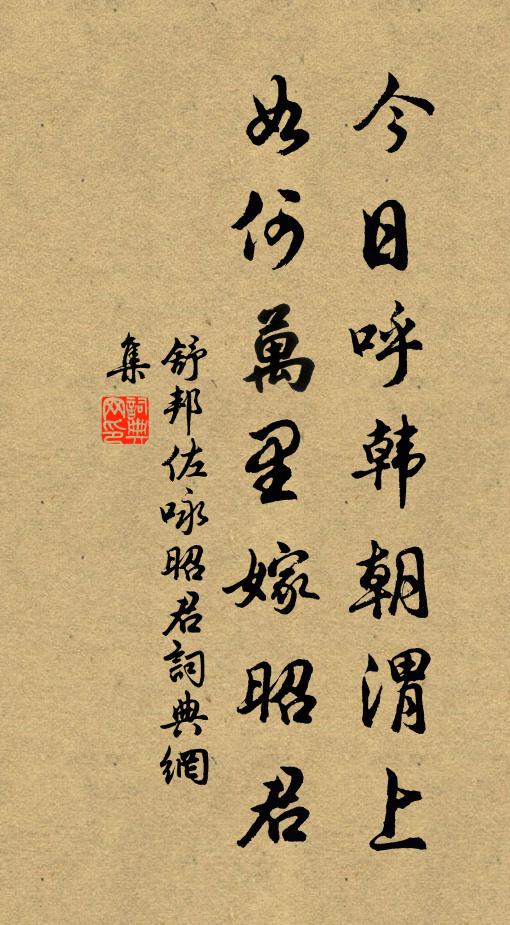 今日呼韩朝渭上
如何萬里嫁昭君
舒邦佐咏昭君詞典網
集
詞典网印